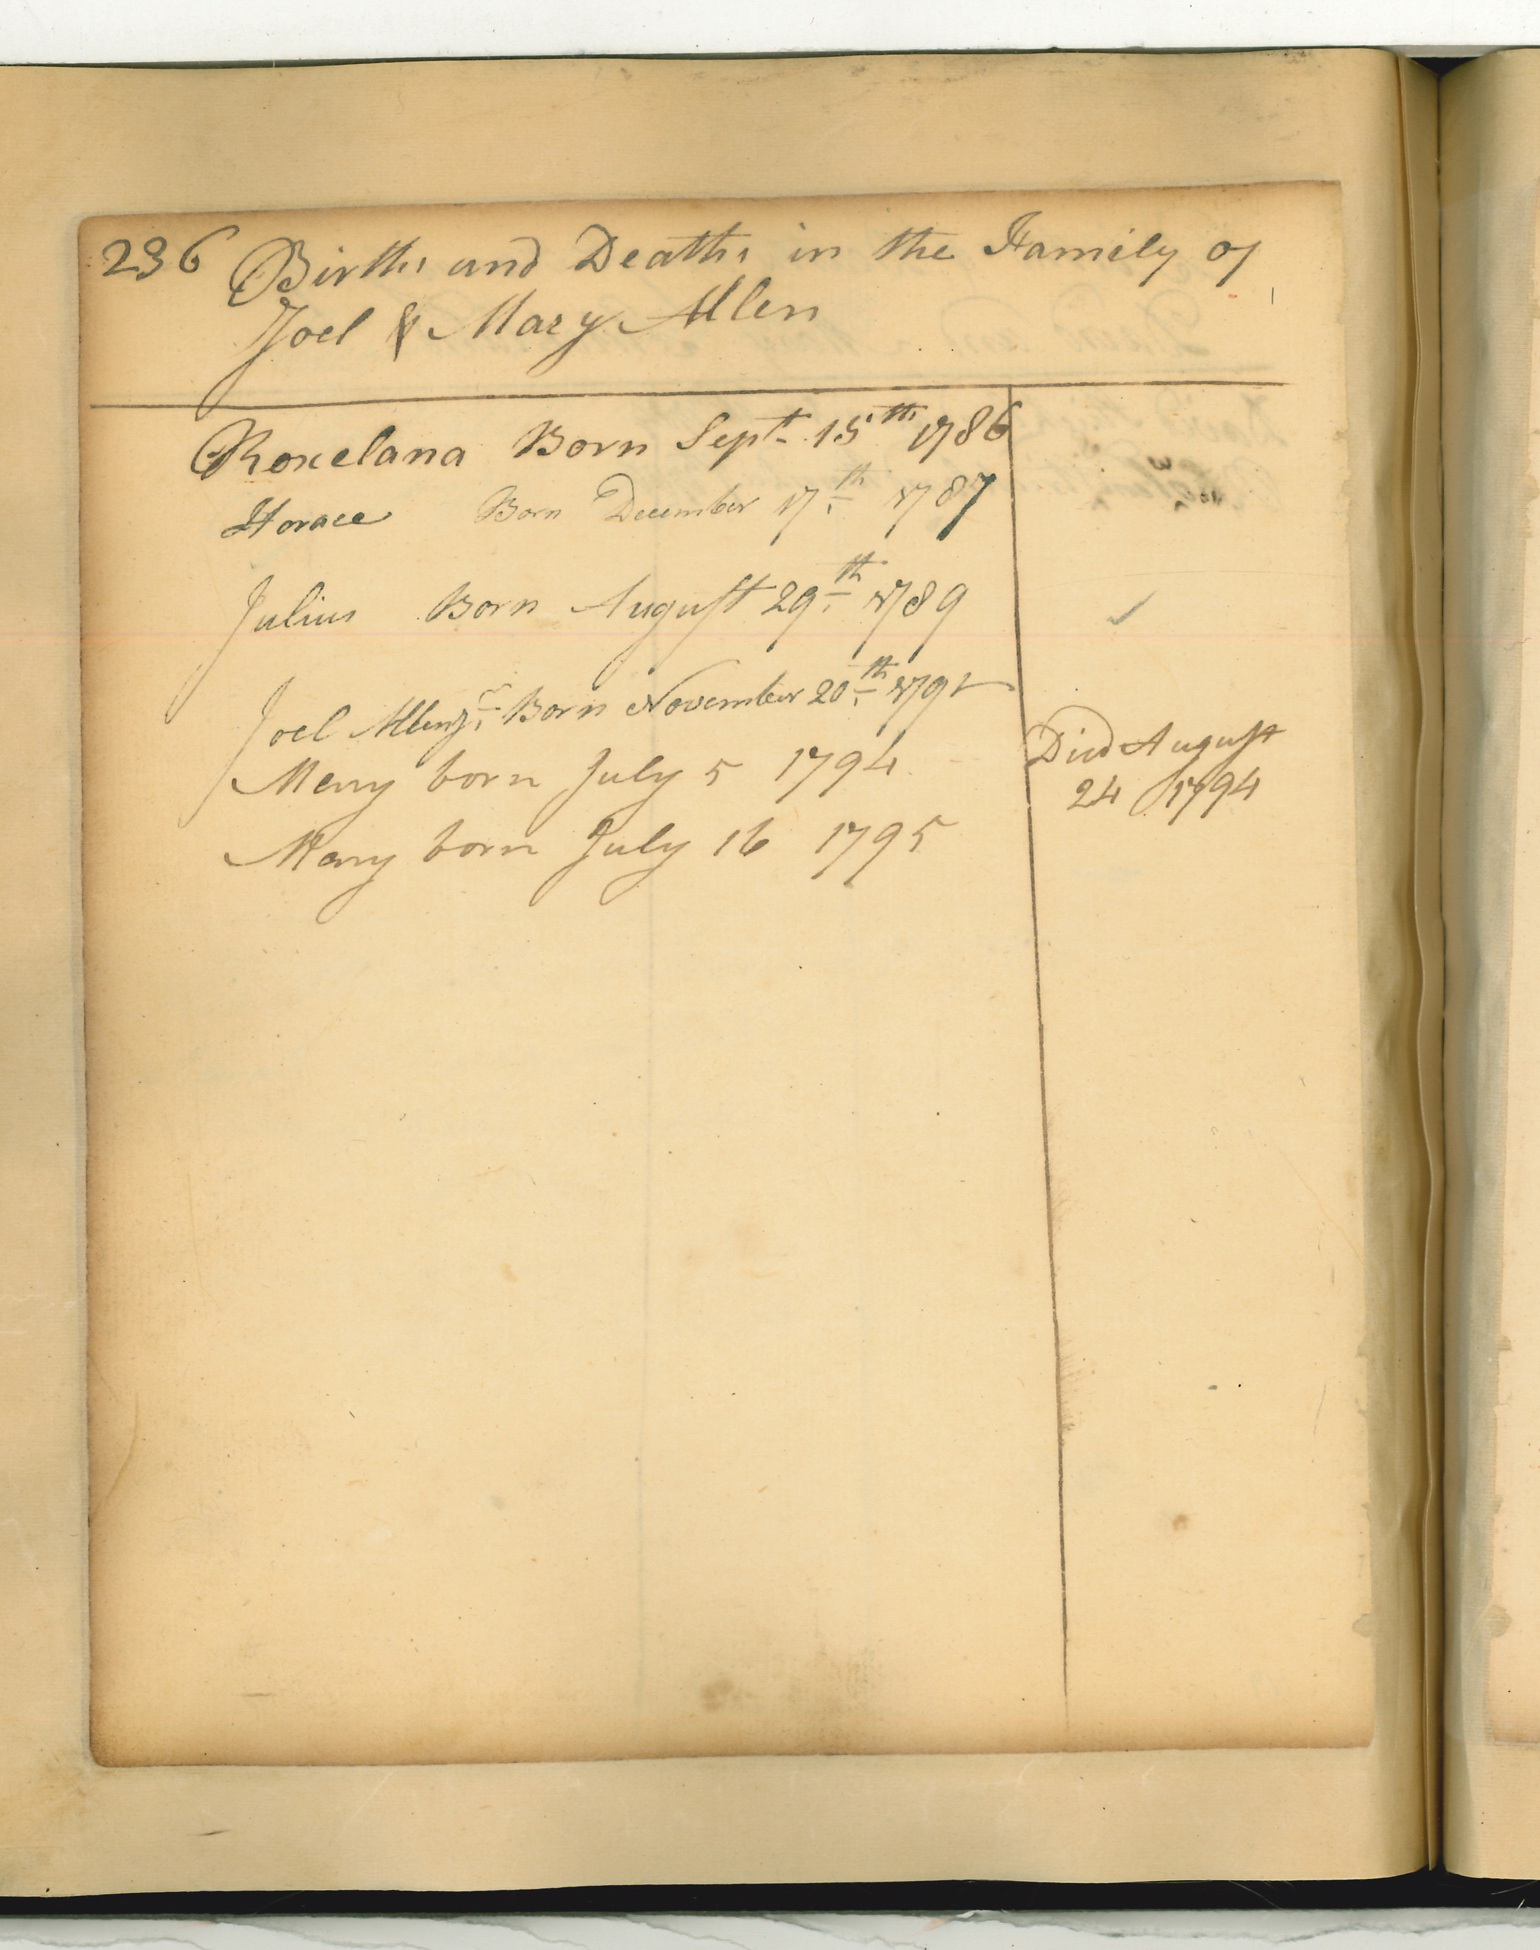 236 Births and Deaths in the Family of
Joel & Mary Allen
Roxelana Born Sept. 15th 1786
Horace Born December 17th 1787
Julius Born August 29th 1789
Joel Allen jr. Born November 20th 1792
Mery born July 5 1794
Died August
24 1794
Mary born July 16 1795